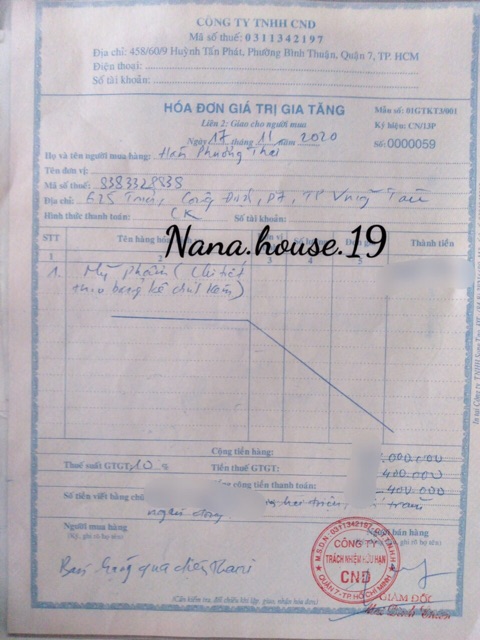 CÔNG TY TNHH CND
Mã số thuế: 0311342197
Địa chỉ: 458/60/9 Huỳnh Tấn Phát, Phường Bình Thuận, Quận 7, TP. HCM
Điện thoại:
Số tài khoản:
HÓA ĐƠN GIÁ TRỊ GIA TĂNG
Mẫu số: 01GTKT3/001
Liên 2: Giao cho người mua
Ký hiệu: CN/13P
Ngày 17 tháng 11 năm 2020
Số: 0000059
Họ và tên người mua hàng: Phương
Tên đơn vị:
Mã số thuế: 8383328838
Địa chỉ: 625 TP Vũng Tàu
Hình thức thanh toán: CK Số tài khoản:
Nana.house.19
STT Tên hàng Thành tiền
1 2 3 4 5
1. Mỹ phẩm (chi tiết
theo bảng kê đính kèm)
Cộng tiền hàng: .000.000
Thuế suất GTGT: 10 % Tiền thuế GTGT: 400.000
cộng tiền thanh toán: 400.000
Số tiền viết bằng chữ: hai triệu, trăm
ngàn đồng
Người mua hàng bán hàng
(Ký, ghi rõ họ tên)
Bán hàng qua điện thoại
M.S.D.N: 0311342197
CÔNG TY
TRÁCH NHIỆM HỮU HẠN
CND
QUẬN 7 - TP. HỒ CHÍ MINH
GIÁM ĐỐC
(Cần kiểm tra, đối chiếu khi lập, giao, nhận hóa đơn)